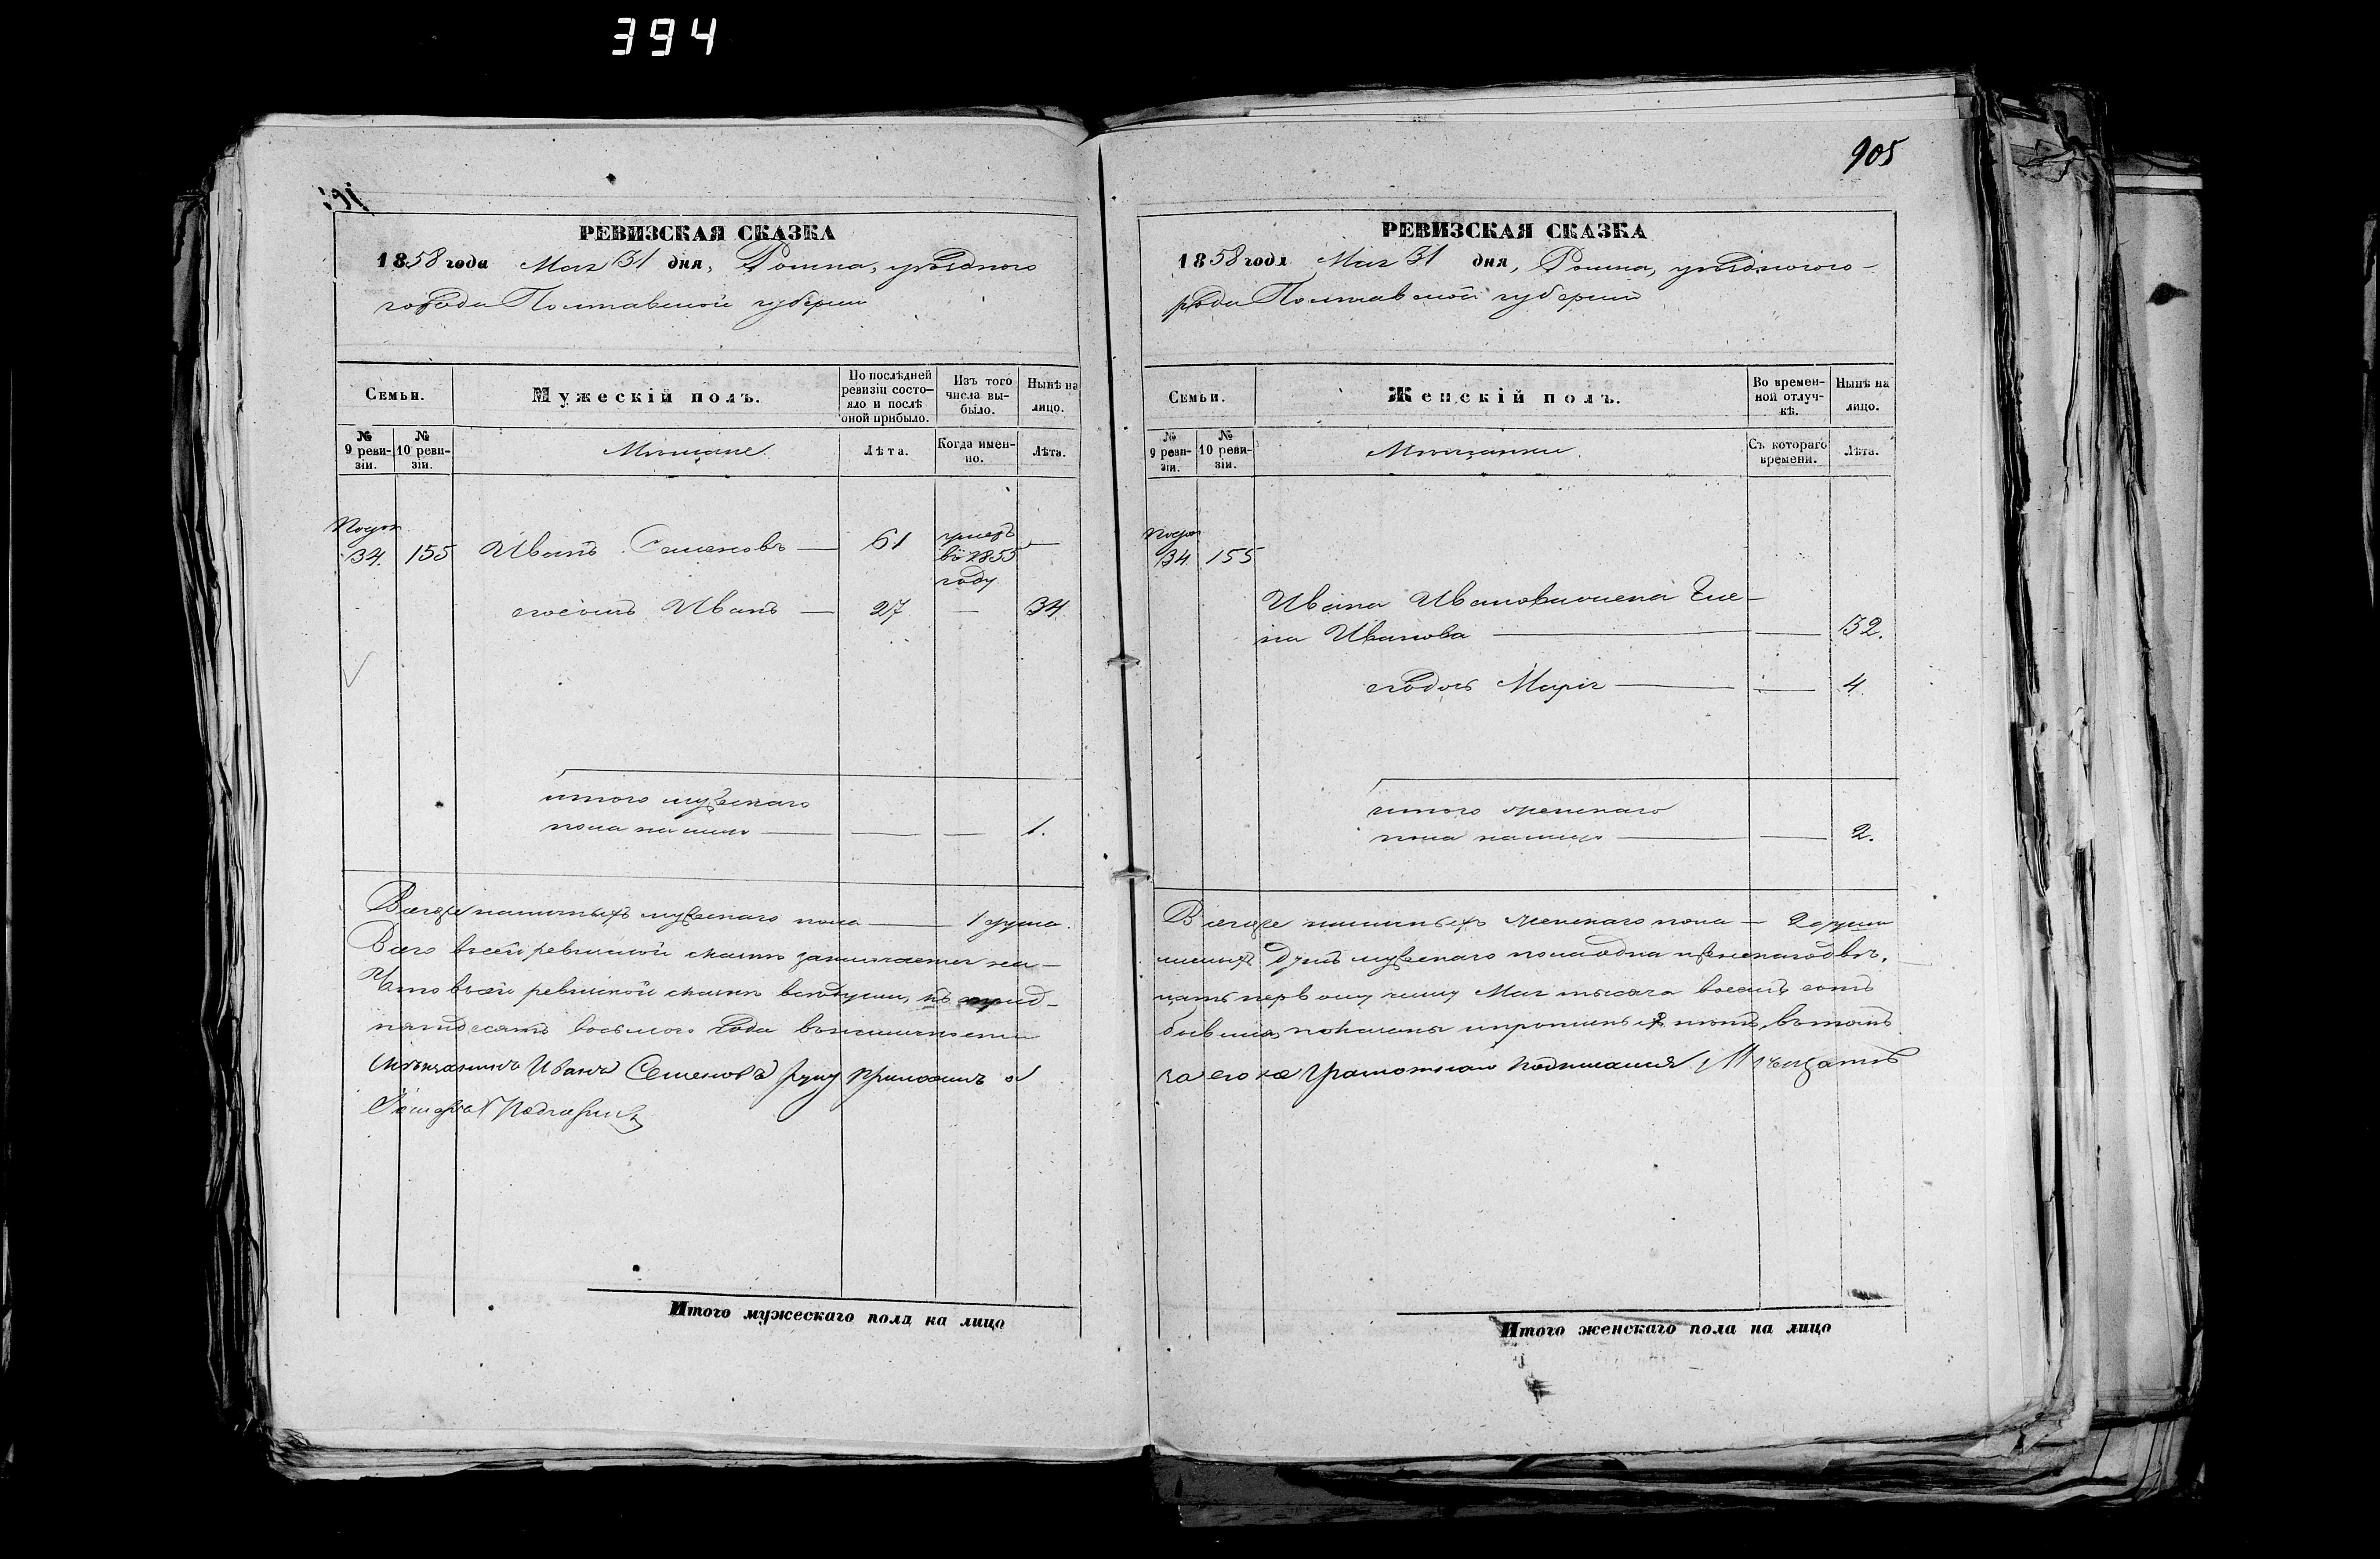 394
РЕВИЗСКАЯ СКАЗКА
1858 года Мая 31 дня, Ромна, уѣзднаго
города Полтавской губерніи
Семьи.
Мужескій полъ.
По послѣдней ревизіи состо-
яло и послѣ оной прибыло.
Изъ того числа вы-
было.
Нынѣ на лицо.
№ 9 реви-
зіи.
№ 10 реви-
зіи.
Мѣщане
Лѣта.
Когда имен-
но.
Лѣта.
34. 155 Иванъ Семеновъ — 61 умеръ —
въ 1855
году
его сынъ Иванъ — 27 — 34.
итого мужескаго
пола на лицо — — — 1.
Всего же наличныхъ мужескаго пола — 1 душа.
Всего въ сей ревизской сказкѣ заключается на-
Что въ сей ревизской сказкѣ всѣ души, къ
пятдесятъ восьмого года въ наличности
Мѣщанинъ Иванъ Семеновъ руку приложилъ
905
РЕВИЗСКАЯ СКАЗКА
1858 года Мая 31 дня, Ромна, уѣзднаго го-
рода Полтавской губерніи
Семьи.
Женскій полъ.
Во времен-
ной отлуч-
кѣ.
Нынѣ на лицо.
№ 9 реви-
зіи.
№ 10 реви-
зіи.
Мѣщанки.
Съ котораго времени.
Лѣта.
34 155
Ивана Иванова жена Еле-
на Иванова — — 32.
его дочь Марія — — 4.
итого женскаго
пола на лицо — — 2.
Всего же наличныхъ женскаго пола — 2 души
личныхъ душъ мужескаго пола одна и женскаго двѣ.
цать первому числу Мая тысяча восемь сотъ
бывшія, показаны и прописныхъ нѣтъ, въ томъ
за его не грамотнаго подписался Мѣщанинъ
Итого мужескаго пола на лицо
Итого женскаго пола на лицо